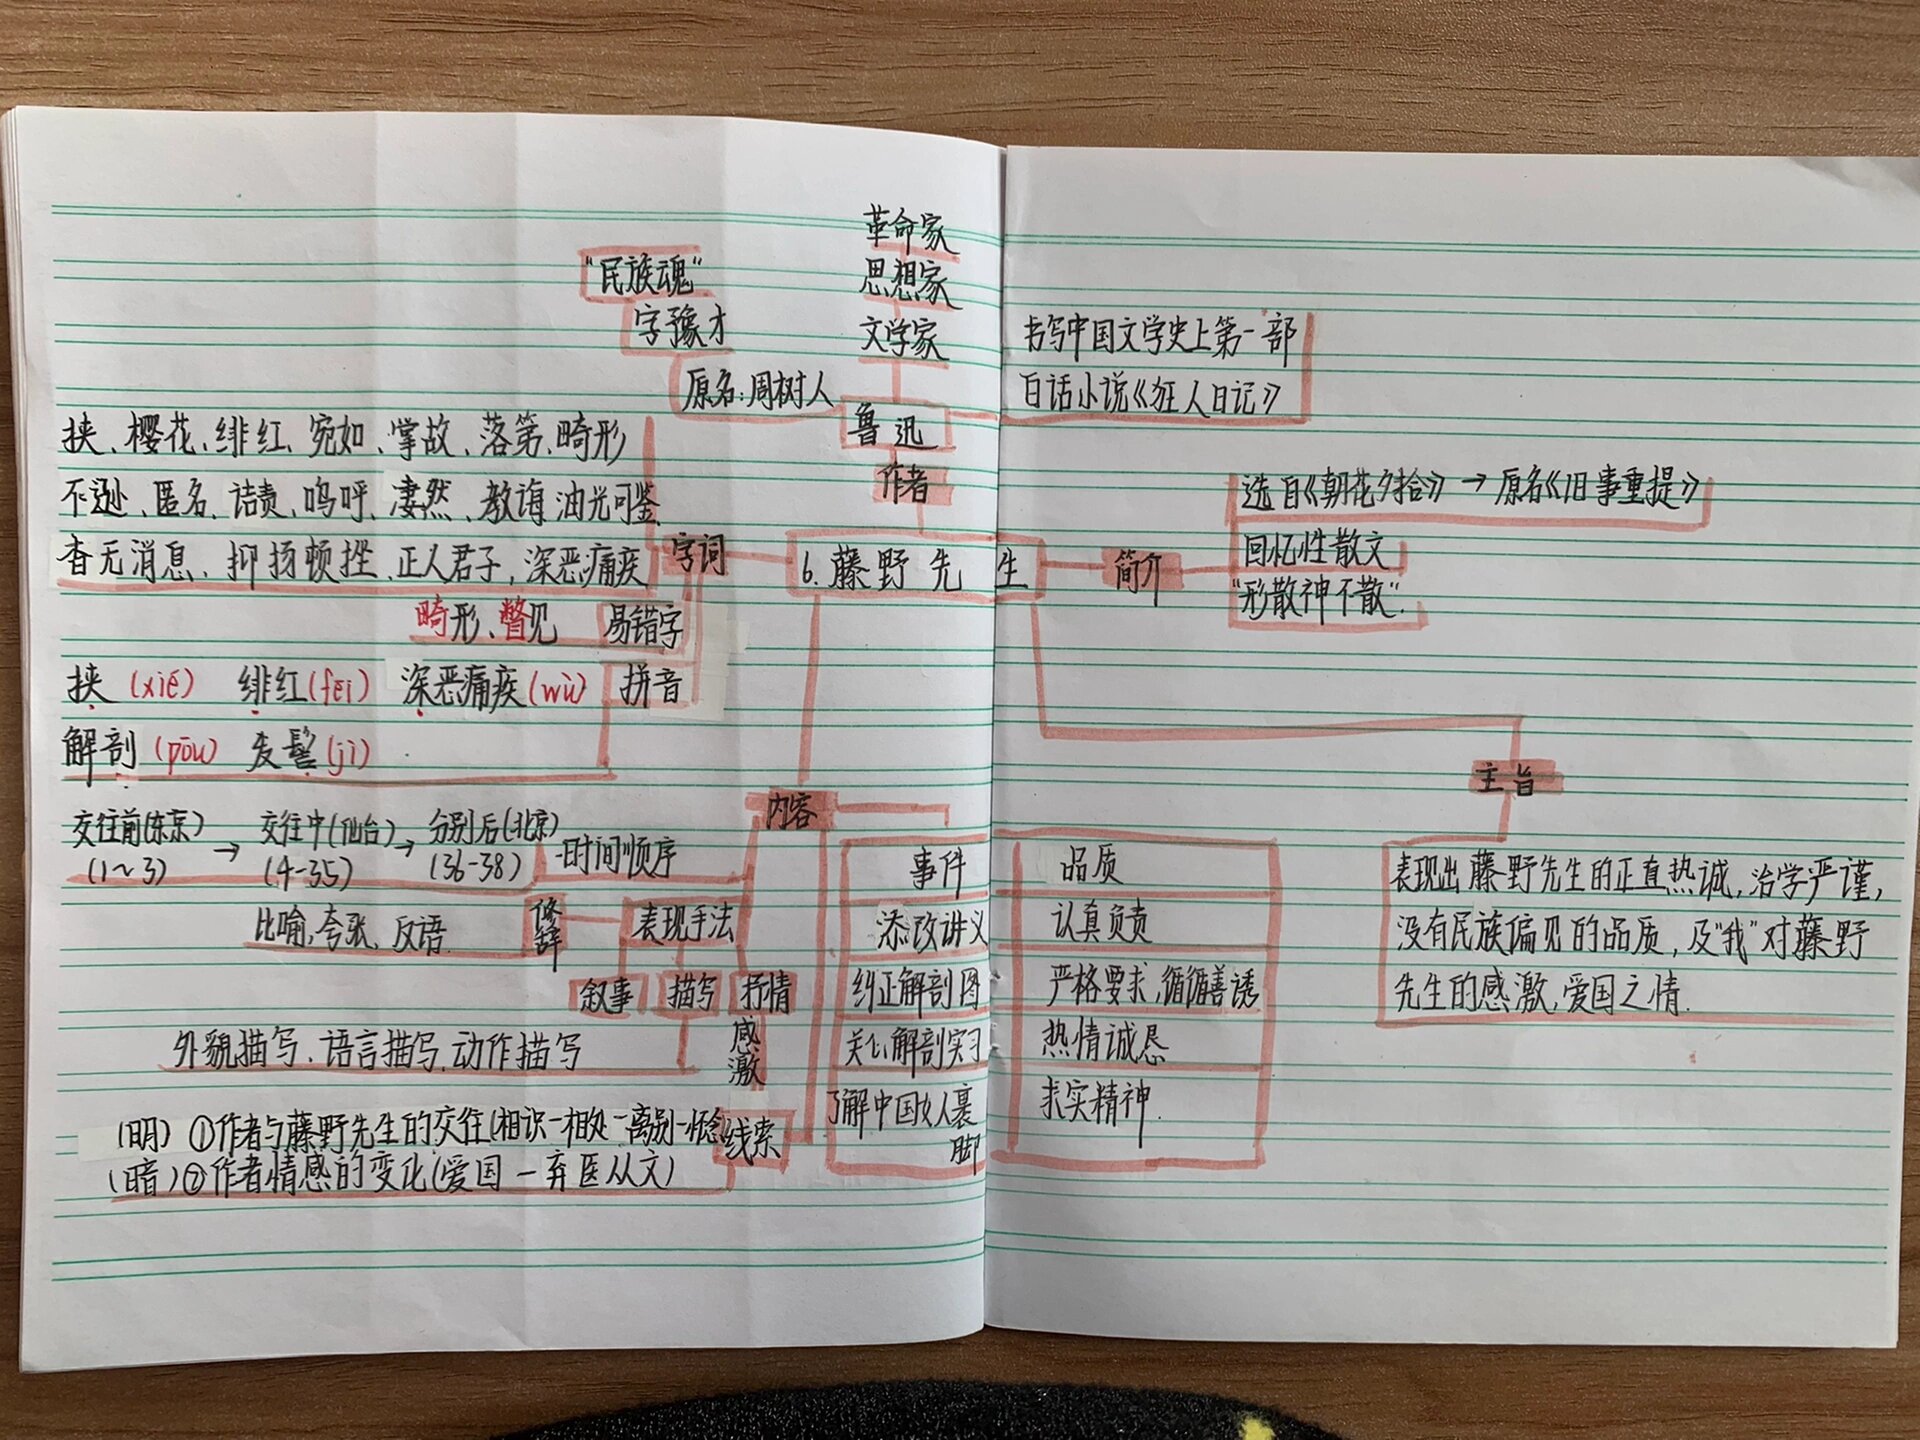 革命家
思想家
文学家
"民族魂"
字豫才
原名:周树人
鲁迅
作者
书写中国文学史上第一部
白话小说《狂人日记》
6.藤野先生
简介
选自《朝花夕拾》→原名《旧事重提》
回忆性散文
"形散神不散".
字词
挟、樱花、绯红、宛如、掌故、落第、畸形
不逊、匿名、诘责、呜呼、凄然、教诲、油光可鉴
杳无消息、抑扬顿挫、正人君子,深恶痛疾
易错字
畸形、瞥见
拼音
挟(xié) 绯红(fēi) 深恶痛疾(wù)
解剖(pōu) 发髻(jì)
内容
时间顺序
交往前(东京)→交往中(仙台)→分别后(北京)
(1~3) (4-35) (36-38)
表现手法
修辞
比喻,夸张、反语.
叙事 描写 抒情
感激
外貌描写、语言描写、动作描写
线索
(明)①作者与藤野先生的交往(相识-相处-离别-怀念
(暗)②作者情感的变化(爱国-弃医从文)
事件 品质
添改讲义 认真负责
纠正解剖图 严格要求,循循善诱
关心解剖实习 热情诚恳
了解中国女人裹脚 求实精神.
主旨
表现出藤野先生的正直热诚,治学严谨,
没有民族偏见的品质,及"我"对藤野
先生的感激,爱国之情.